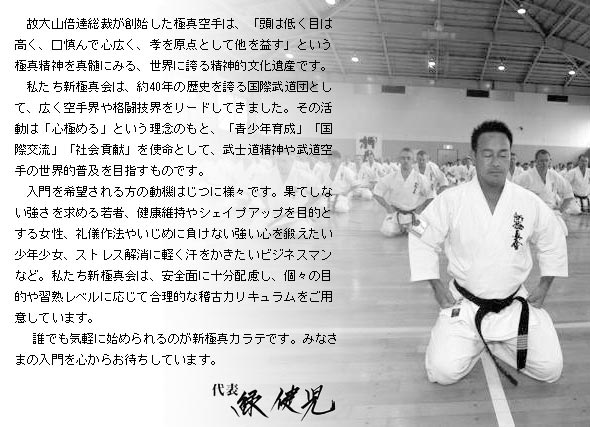 故大山倍達総裁が創始した極真空手は、「頭は低く目は
高く、口慎んで心広く、孝を原点として他を益す」という
極真精神を真髄にみる、世界に誇る精神的文化遺産です。
私たち新極真会は、約40年の歴史を誇る国際武道団とし
て、広く空手界や格闘技界をリードしてきました。その活
動は「心極める」という理念のもと、「青少年育成」「国
際交流」「社会貢献」を使命として、武士道精神や武道空
手の世界的普及を目指すものです。
入門を希望される方の動機はじつに様々です。果てしな
い強さを求める若者、健康維持やシェイプアップを目的と
する女性、礼儀作法やいじめに負けない強い心を鍛えたい
少年少女、ストレス解消に軽く汗をかきたいビジネスマン
など。私たち新極真会は、安全面に十分配慮し、個々の目
的や習熟レベルに応じて合理的な稽古カリキュラムをご用
意しています。
誰でも気軽に始められるのが新極真カラテです。みなさ
まの入門を心からお待ちしています。
代表 緑 健児
新極真会